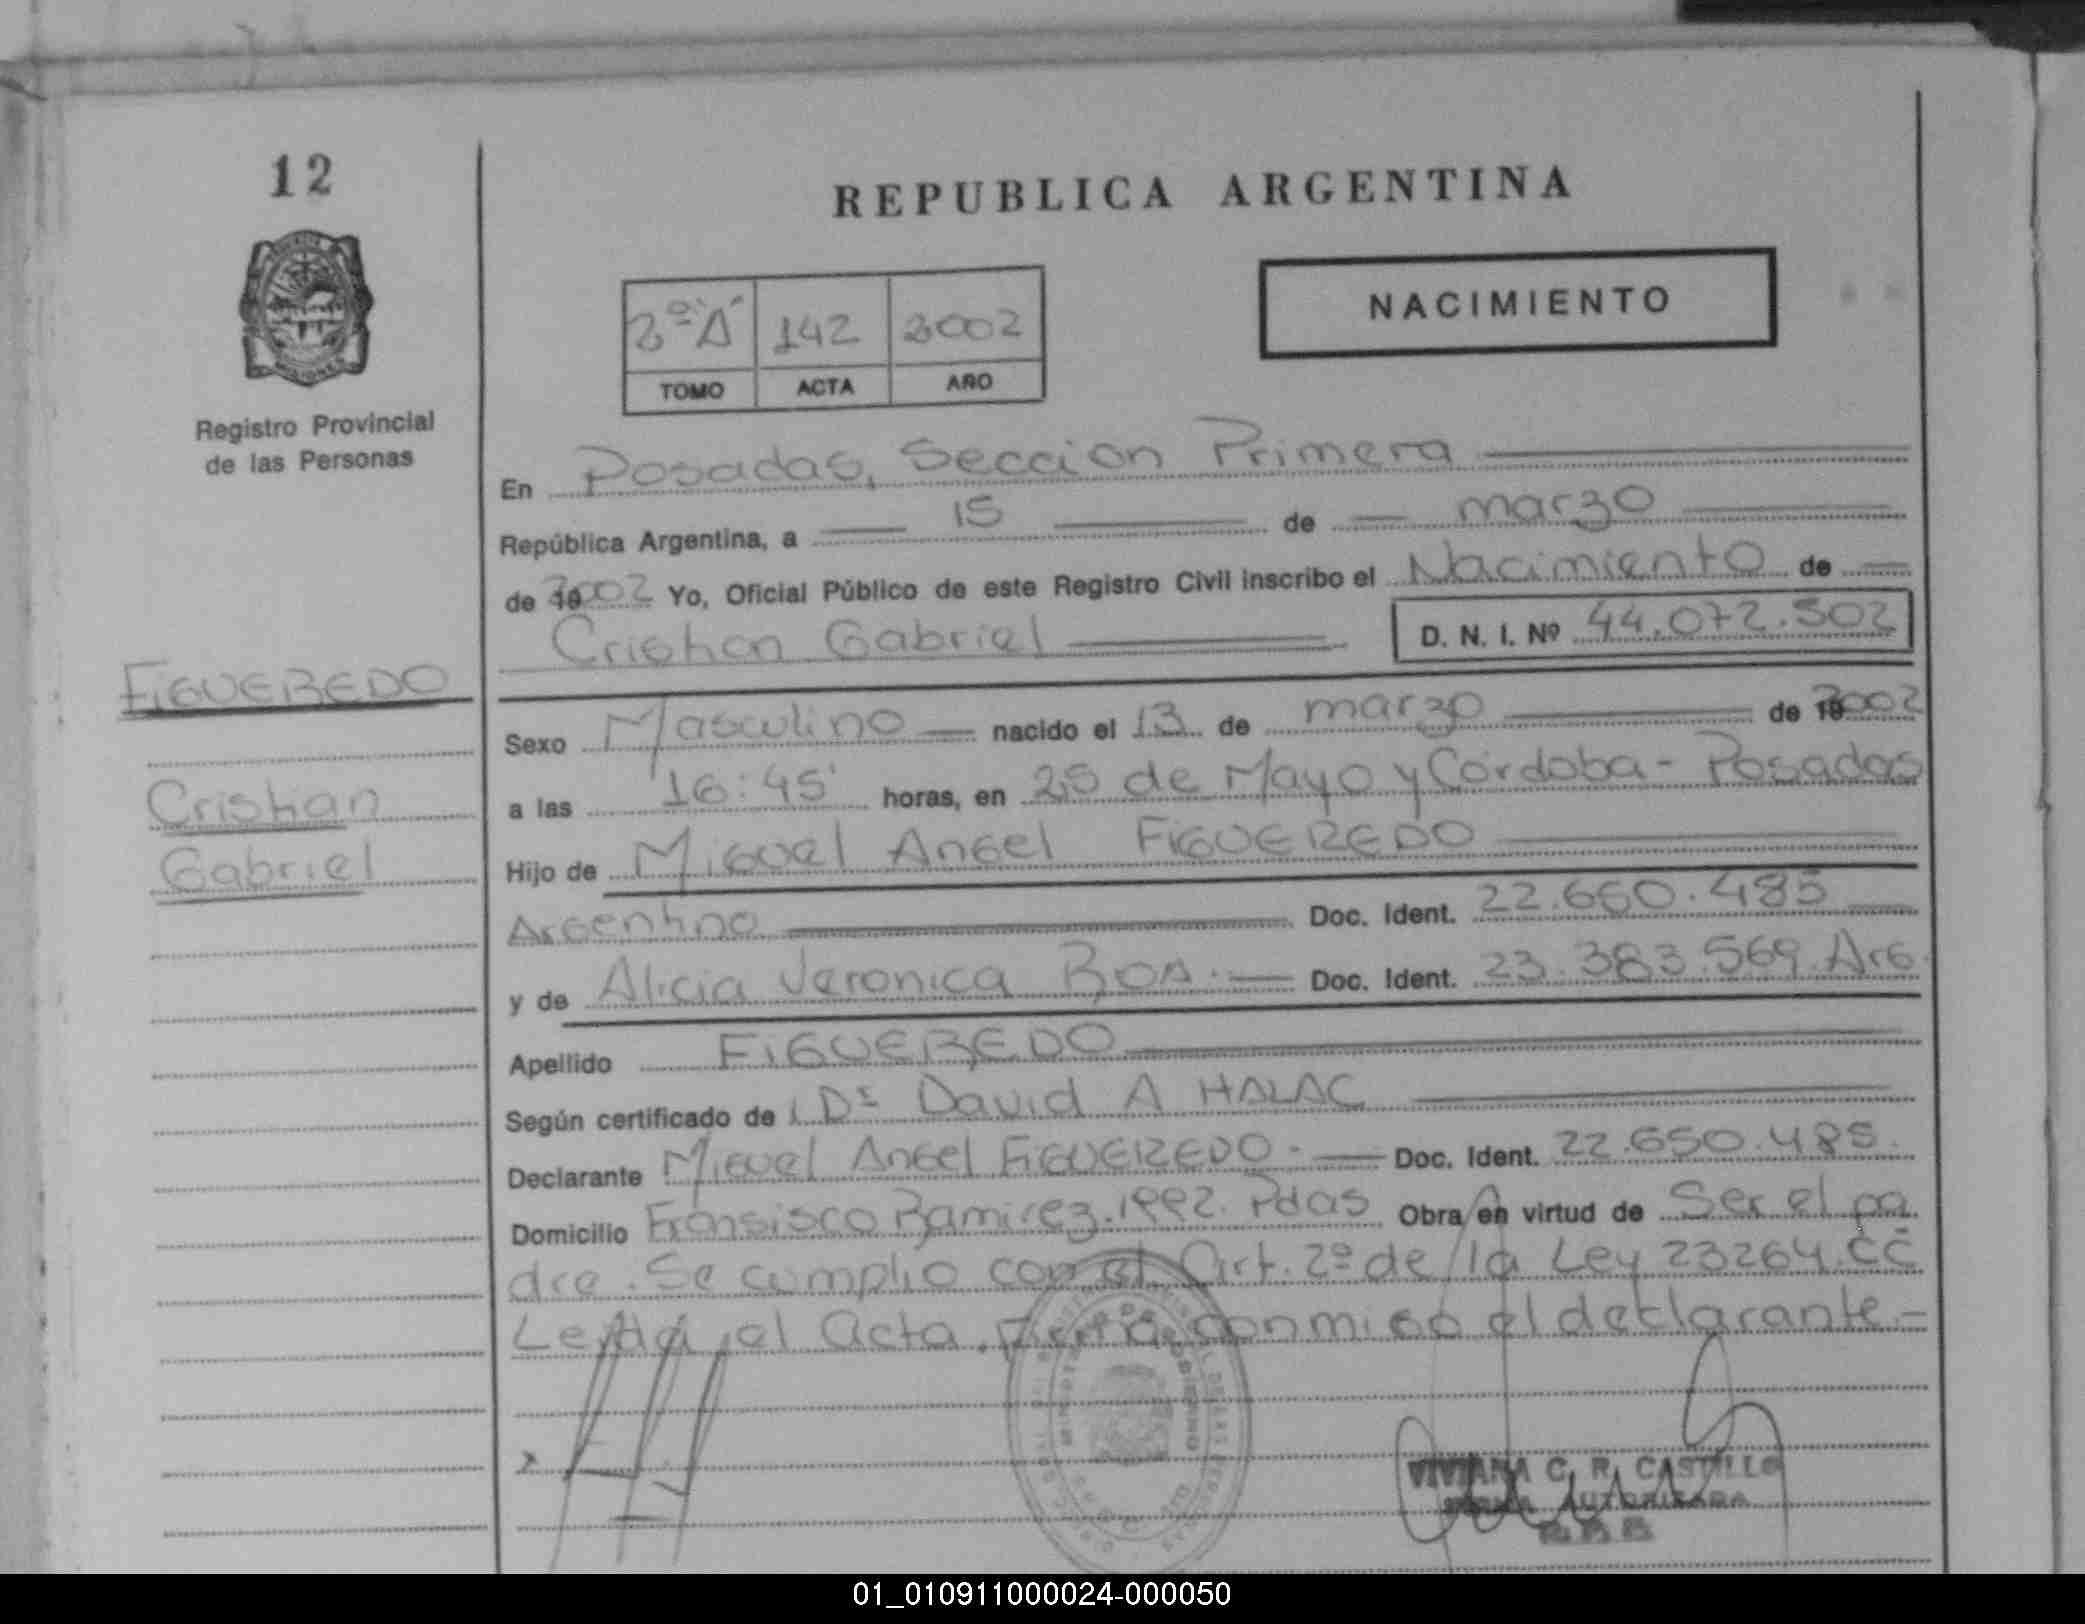 12
REPUBLICA ARGENTINA
NACIMIENTO
2º "A" 142 2002
TOMO ACTA AÑO
MISIONES
Registro Provincial
de las Personas
En Posadas, Sección Primera
República Argentina, a 15 de marzo
de 2002 Yo, Oficial Público de este Registro Civil inscribo el Nacimiento de
Cristian Gabriel D. N. I. Nº 44.072.502
FIGUEREDO
Cristian
Gabriel
Sexo Masculino nacido el 13 de marzo de 2002
a las 16:45' horas, en 25 de Mayo y Córdoba - Posadas
Hijo de Miguel Angel FIGUEREDO
Argentino Doc. Ident. 22.650.485
y de Alicia Veronica ROA.- Doc. Ident. 23.383.569. Arg.
Apellido FIGUEREDO
Según certificado de Dr David A HALAC
Declarante Miguel Angel FIGUEREDO.- Doc. Ident. 22.650.485.
Domicilio Fransisco Ramirez. 1992. Pdas Obra en virtud de Ser el pa
dre. Se cumplio con el Art. 2º de la Ley 23264. CC
Leida el acta, firma conmigo el declarante.-
VIVIANA C. R. CASTILLO
FIRMA AUTORIZADA
01_010911000024-000050